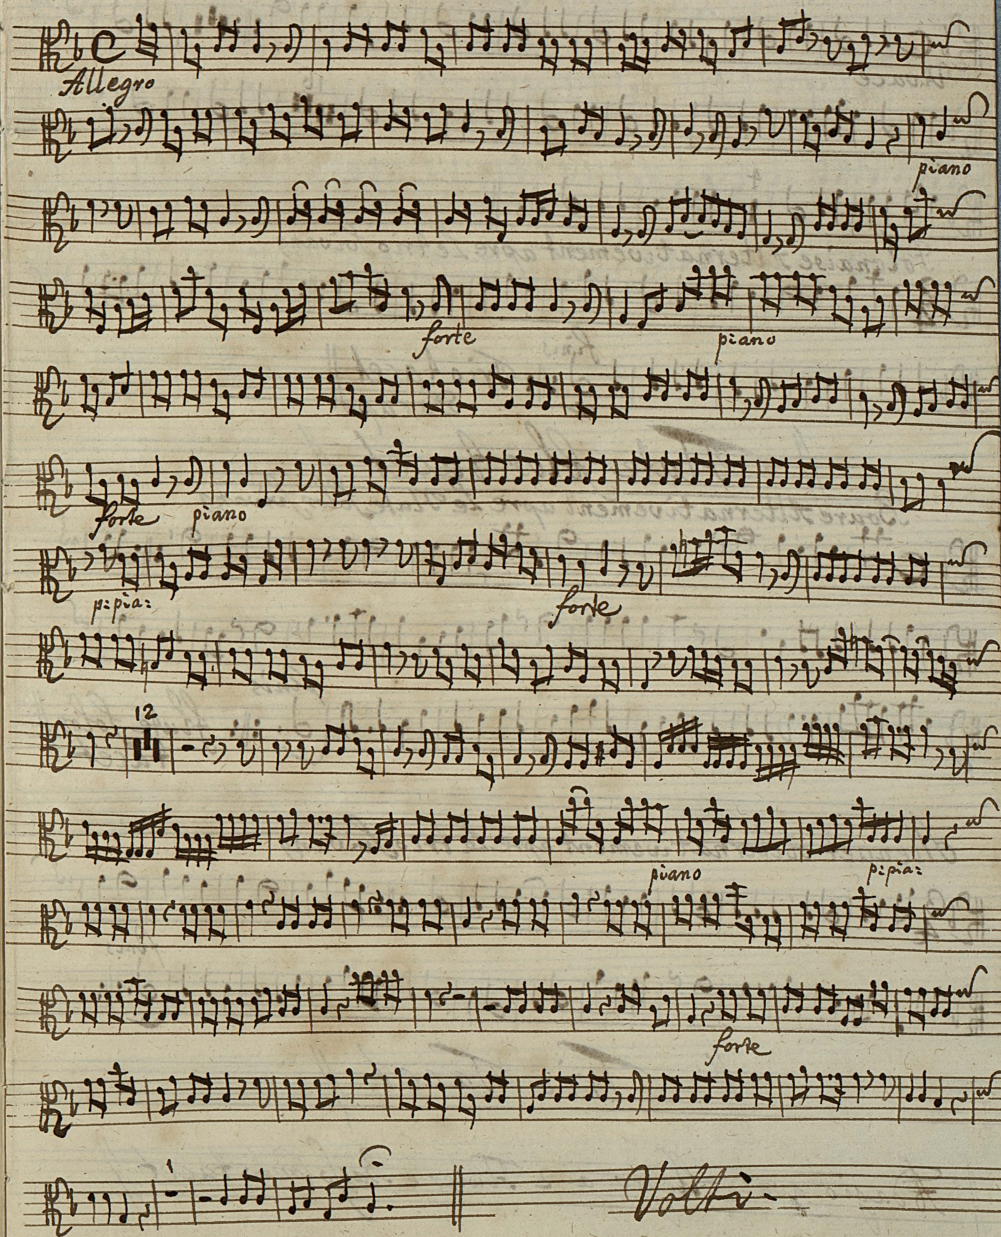 Allegro
piano
forte piano
forte piano
p: pia:
forte
12
piano p: pia:
forte
Volti